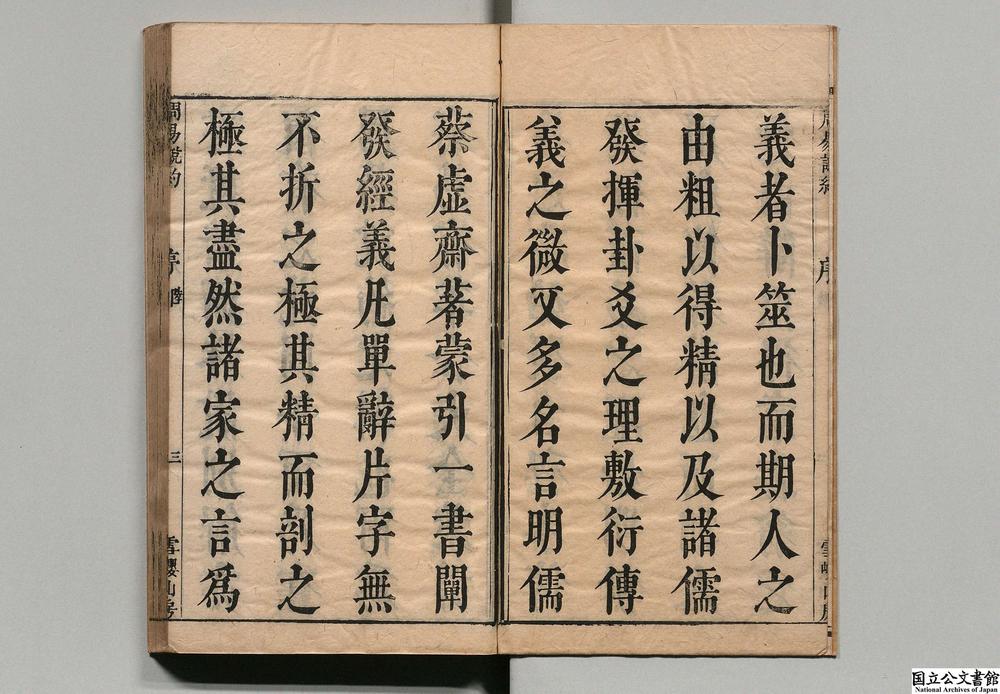 義者卜筮也而期人之
由粗以得精以及諸儒
發揮卦爻之理敷衍傳
義之微又多名言明儒
蔡虛齋著蒙引一書闡
發經義凡單辭片字無
不折之極其精而剖之
極其盡然諸家之言為
周易說約
序
三
国立公文書館
National Archives of Japan